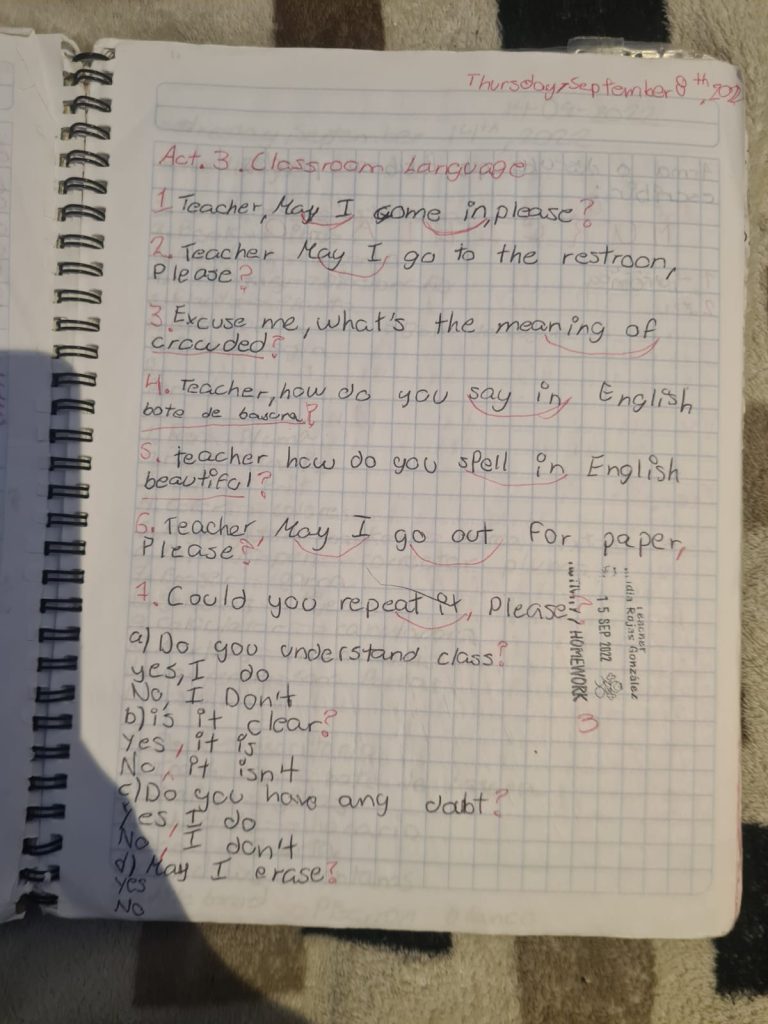 Thursday, September 8th, 202
Act. 3. Classroom Language
1 Teacher, May I come in, please?
2. Teacher May I, go to the restroon,
Please?
3. Excuse me, what's the meaning of
crowded?
4. Teacher, how do you say in English
bote de basura?
5. teacher how do you spell in English
beautiful?
6. Teacher, May I go out for paper,
Please?
7. Could you repeat it, Please?
a) Do you understand class?
yes, I do
No, I Don't
b) is it clear?
Yes, it is
No, it isn't
c) Do you have any dabt?
Yes, I do
No, I don't
d) May I erase?
Yes
No
TEACHER
Rojas González
15 SEP 2022
ACTIVITY / HOMEWORK
3